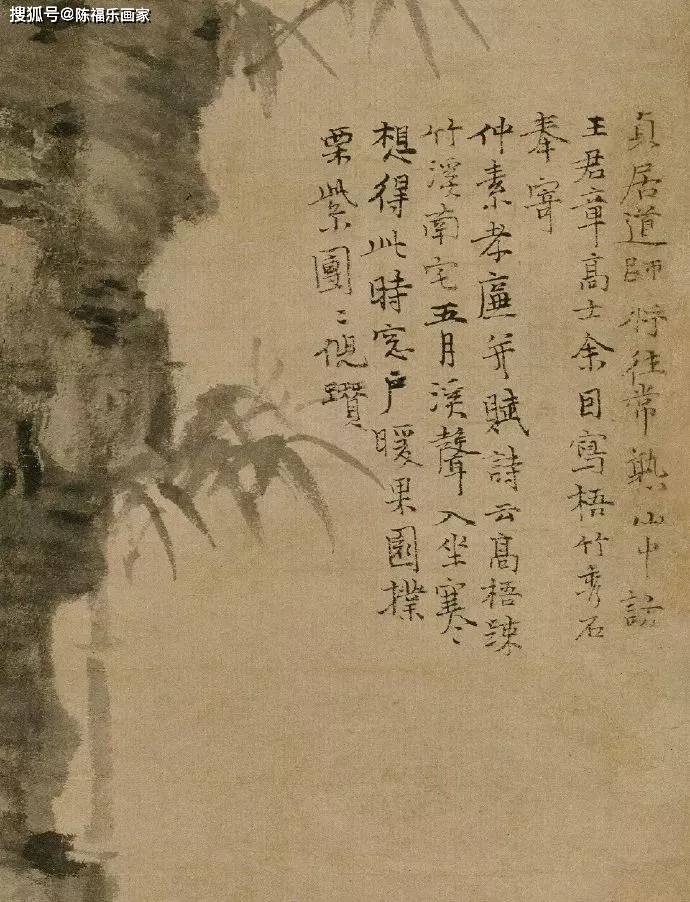 搜狐号@陈福乐画家
貞居道師將往常熟山中訪
王君章高士余因寫梧竹秀石
奉寄
仲素孝廉并賦詩云高梧疎
竹溪南宅五月溪聲入坐寒
想得此時窓戶暖果園撲
栗紫團〻倪瓚